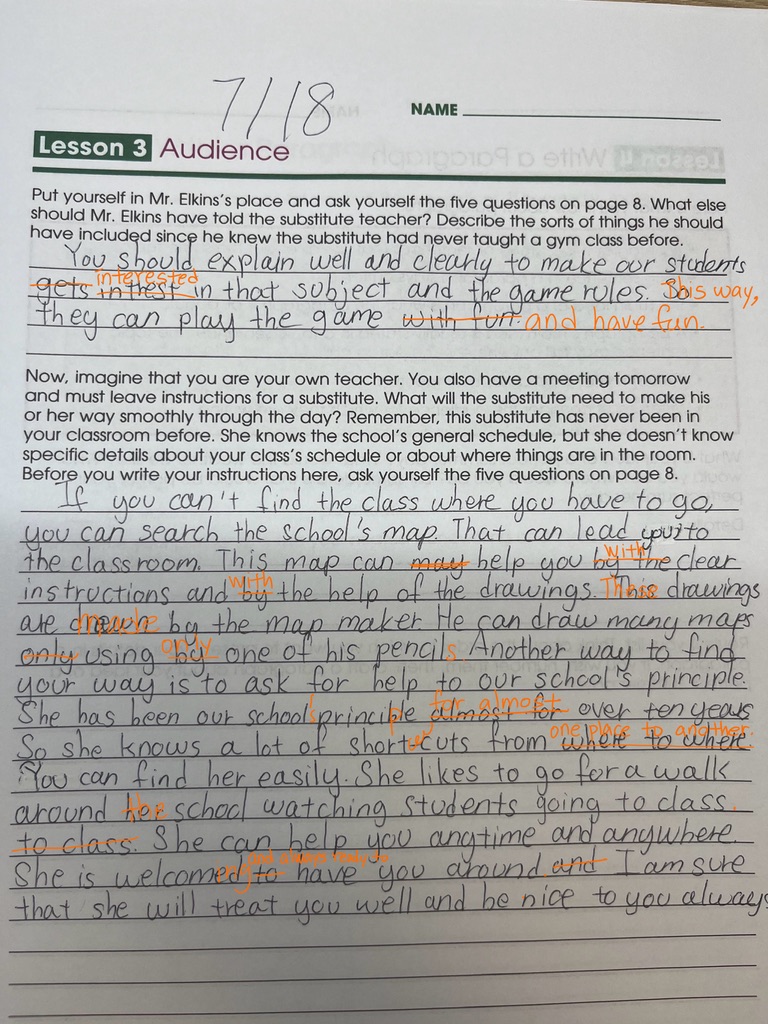 7/18
NAME
Lesson 3 Audience
Put yourself in Mr. Elkins's place and ask yourself the five questions on page 8. What else
should Mr. Elkins have told the substitute teacher? Describe the sorts of things he should
have included since he knew the substitute had never taught a gym class before.
You should explain well and clearly to make our students
interested
gets in that subject and the game rules. This way,
they can play the game with fun. and have fun.
Now, imagine that you are your own teacher. You also have a meeting tomorrow
and must leave instructions for a substitute. What will the substitute need to make his
or her way smoothly through the day? Remember, this substitute has never been in
your classroom before. She knows the school's general schedule, but she doesn't know
specific details about your class's schedule or about where things are in the room.
Before you write your instructions here, ask yourself the five questions on page 8.
If you can't find the class where you have to go,
you can search the school's map. That can lead you to
with
the classroom. This map can may help you by the clear
with
instructions and by the help of the drawings. drawings
are made by the map maker. He can draw many maps
only
only using by one of his pencils. Another way to find
your way is to ask for help to our school's principle.
for almost
She has been our school's principle almost for over ten years
one place to another.
So she knows a lot of shortcuts from where to where.
You can find her easily. She likes to go for a walk
around the school watching students going to class.
to class. She can help you anytime and anywhere.
and always ready to
She is to have you around and I am sure
that she will treat you well and be nice to you always